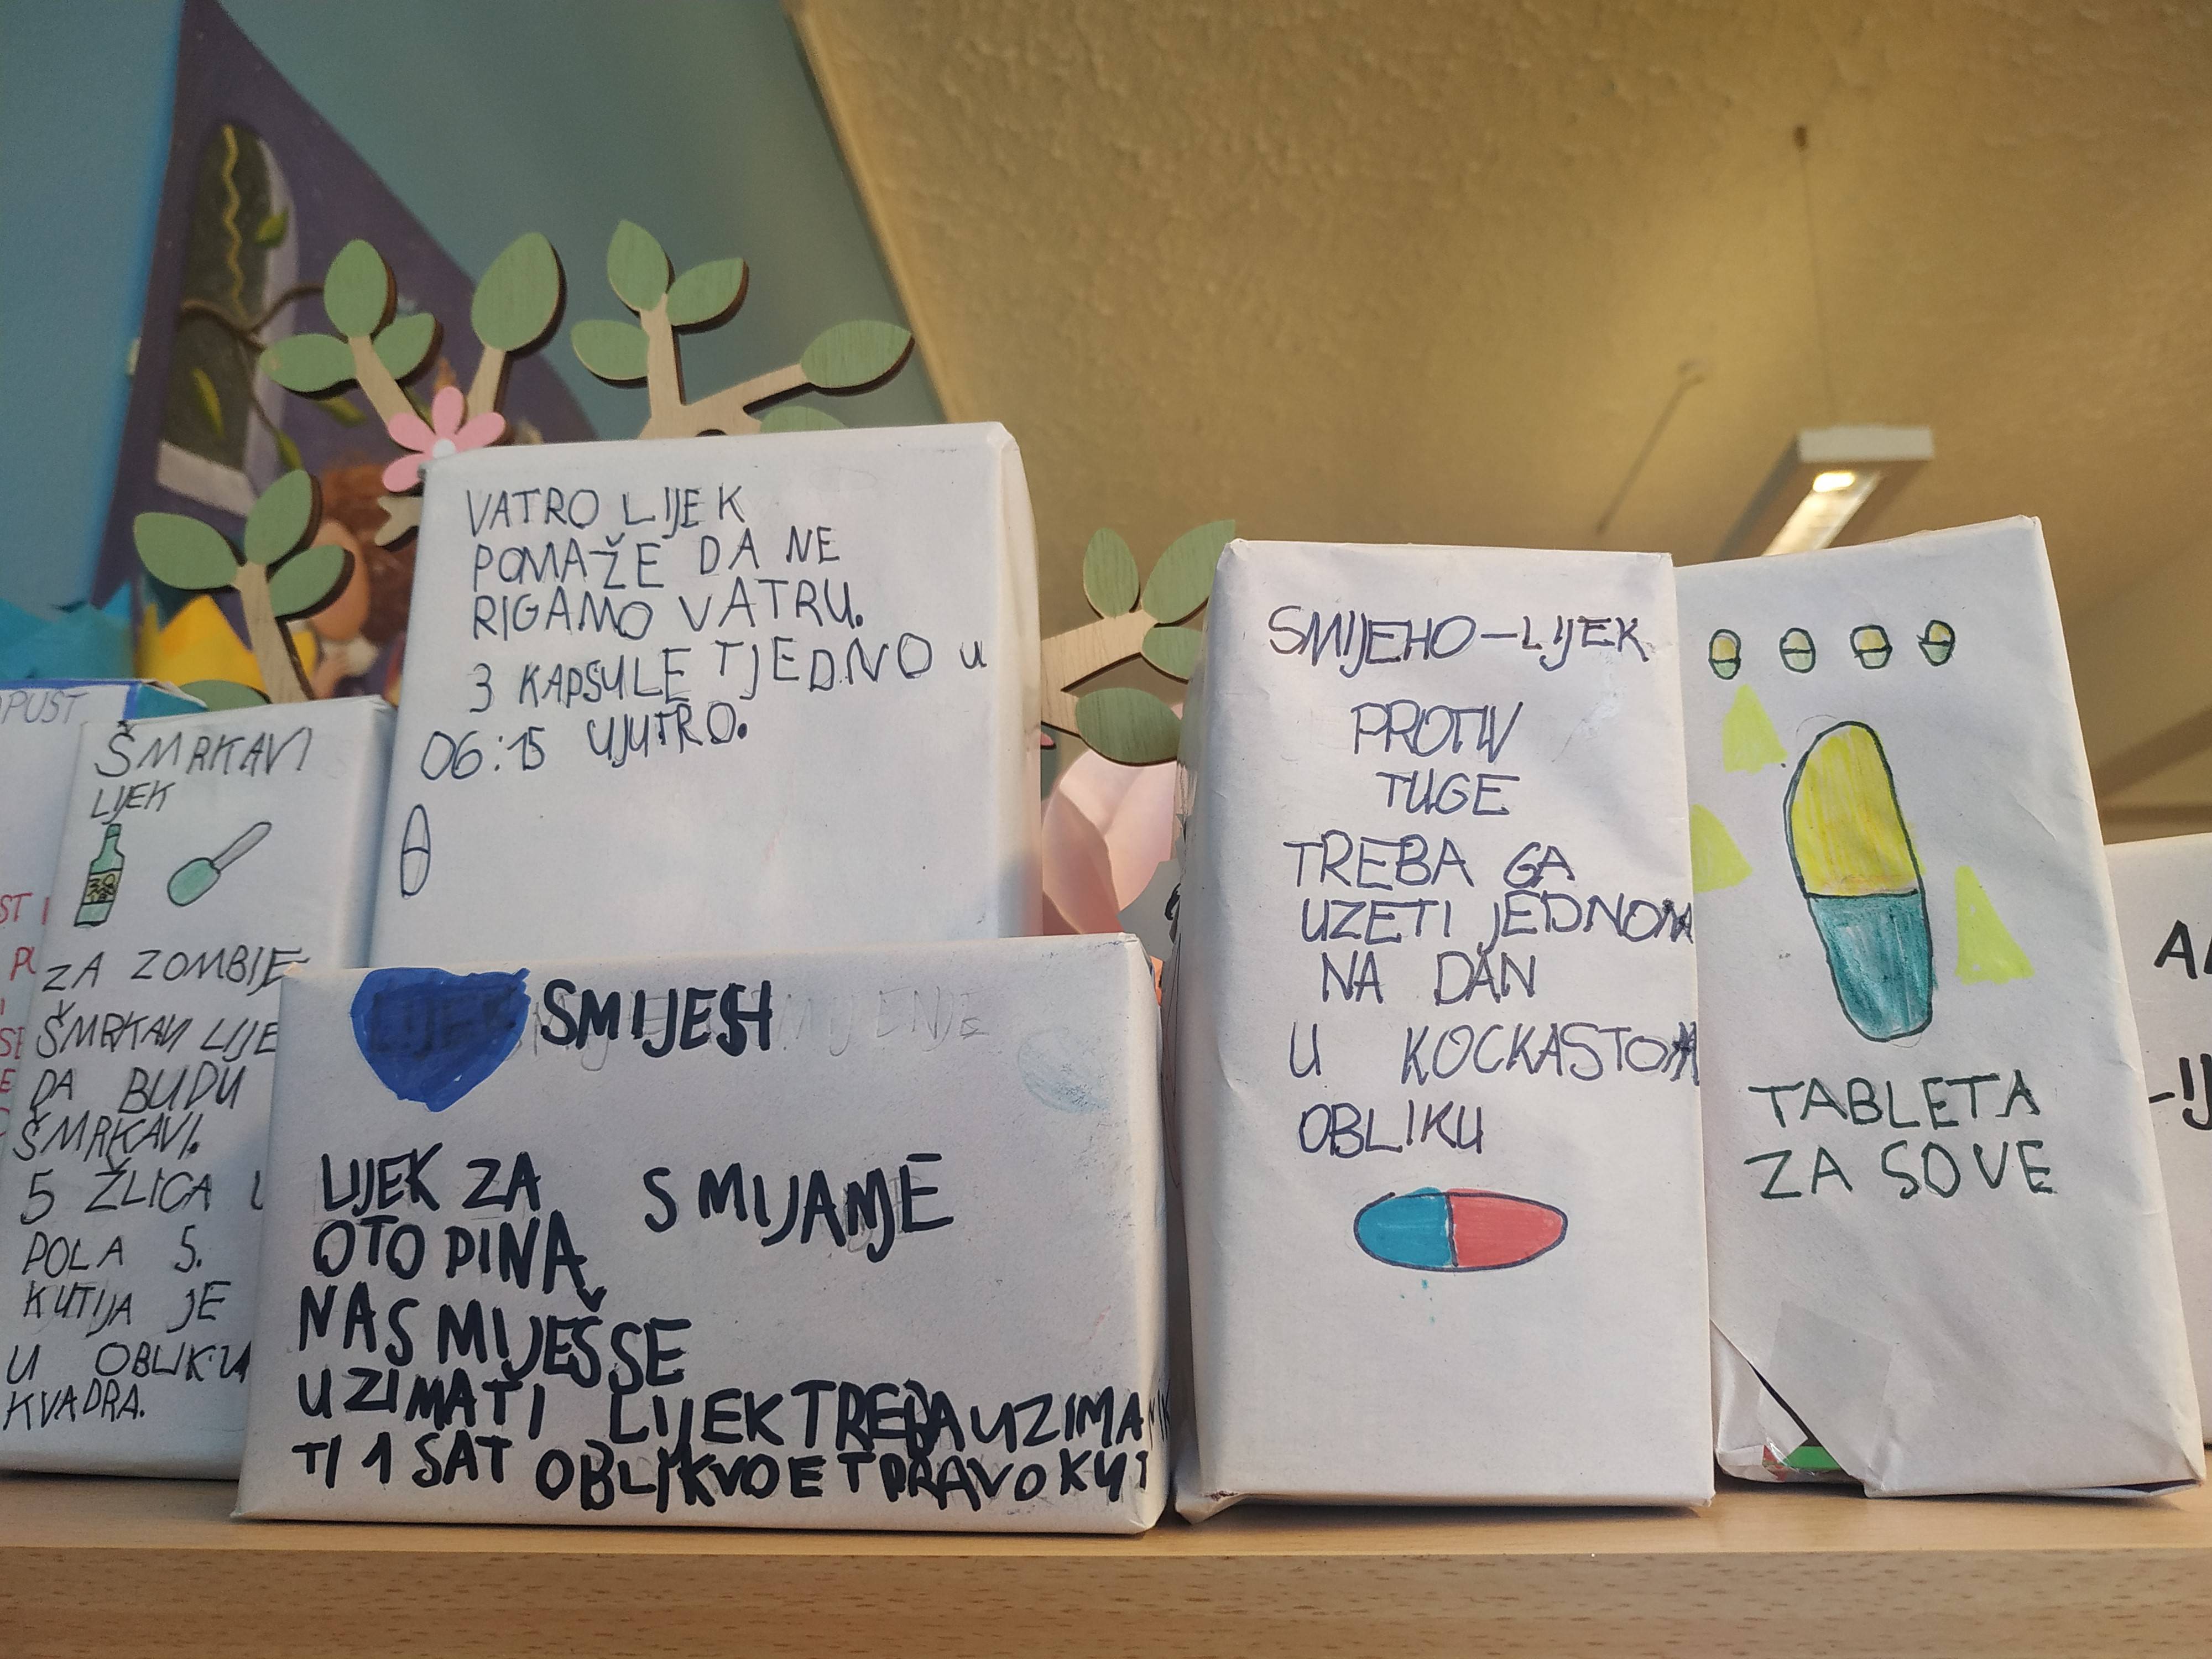 ŠMRKAVI
LIJEK
ZA ZOMBIJE
ŠMRKAVI LIJE
DA BUDU
ŠMRKAVI.
5 ŽLICA U
POLA 5.
KUTIJA JE
U OBLIKU
KVADRA.
VATRO LIJEK
POMAŽE DA NE
RIGAMO VATRU.
3 KAPSULE TJEDNO u
06:15 UJUTRO.
SMIJEH
LIJEK ZA SMIJANJE
OTOPINA
NASMIJEŠSE
UZIMATI LIJEK TREBA UZIMA
TI 1 SAT OBLIKVOET PRAVOKUT
SMIJEHO-LIJEK
PROTIV
TUGE
TREBA GA
UZETI JEDNOM
NA DAN
U KOCKASTOM
OBLIKU
TABLETA
ZA SOVE